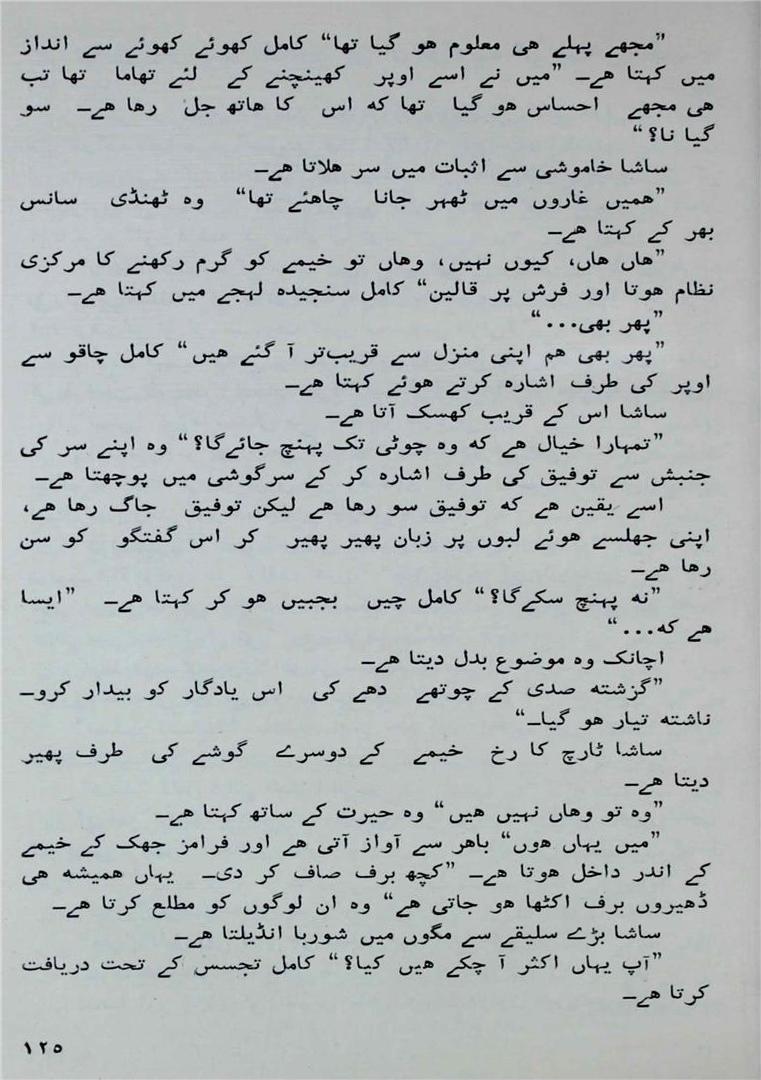 ”مجھے پہلے ھی معلوم ھو گیا تھا“ کامل کھوئے کھوئے سے انداز
میں کہتا ھے۔ ”میں نے اسے اوپر کھینچنے کے لئے تھاما تھا تب
ھی مجھے احساس ھو گیا تھا کہ اس کا ھاتھ جل رھا ھے۔ سو
گیا نا؟“
ساشا خاموشی سے اثبات میں سر ھلاتا ھے۔
”ھمیں غاروں میں ٹھہر جانا چاھئے تھا“ وہ ٹھنڈی سانس
بھر کے کہتا ھے۔
”ھاں ھاں، کیوں نہیں، وھاں تو خیمے کو گرم رکھنے کا مرکزی
نظام ھوتا اور فرش پر قالین“ کامل سنجیدہ لہجے میں کہتا ھے۔
”پھر بھی...“
”پھر بھی ھم اپنی منزل سے قریب‌تر آ گئے ھیں“ کامل چاقو سے
اوپر کی طرف اشارہ کرتے ھوئے کہتا ھے۔
ساشا اس کے قریب کھسک آتا ھے۔
”تمہارا خیال ھے کہ وہ چوٹی تک پہنچ جائے‌گا؟“ وہ اپنے سر کی
جنبش سے توفیق کی طرف اشارہ کر کے سرگوشی میں پوچھتا ھے۔
اسے یقین ھے کہ توفیق سو رھا ھے لیکن توفیق جاگ رھا ھے،
اپنی جھلسے ھوئے لبوں پر زبان پھیر پھیر کر اس گفتگو کو سن
رھا ھے۔
”نہ پہنچ سکے‌گا؟“ کامل چیں بجبیں ھو کر کہتا ھے۔ ”ایسا
ھے کہ...“
اچانک وہ موضوع بدل دیتا ھے۔
”گزشتہ صدی کے چوتھے دھے کی اس یادگار کو بیدار کرو۔
ناشتہ تیار ھو گیا۔“
ساشا ٹارچ کا رخ خیمے کے دوسرے گوشے کی طرف پھیر
دیتا ھے۔
”وہ تو وھاں نہیں ھیں“ وہ حیرت کے ساتھ کہتا ھے۔
”میں یہاں ھوں“ باھر سے آواز آتی ھے اور فرامز جھک کے خیمے
کے اندر داخل ھوتا ھے۔ ”کچھ برف صاف کر دی۔ یہاں ھمیشہ ھی
ڈھیروں برف اکٹھا ھو جاتی ھے“ وہ ان لوگوں کو مطلع کرتا ھے۔
ساشا بڑے سلیقے سے مگوں میں شوربا انڈیلتا ھے۔
”آپ یہاں اکثر آ چکے ھیں کیا؟“ کامل تجسس کے تحت دریافت
کرتا ھے۔
۱۲۵